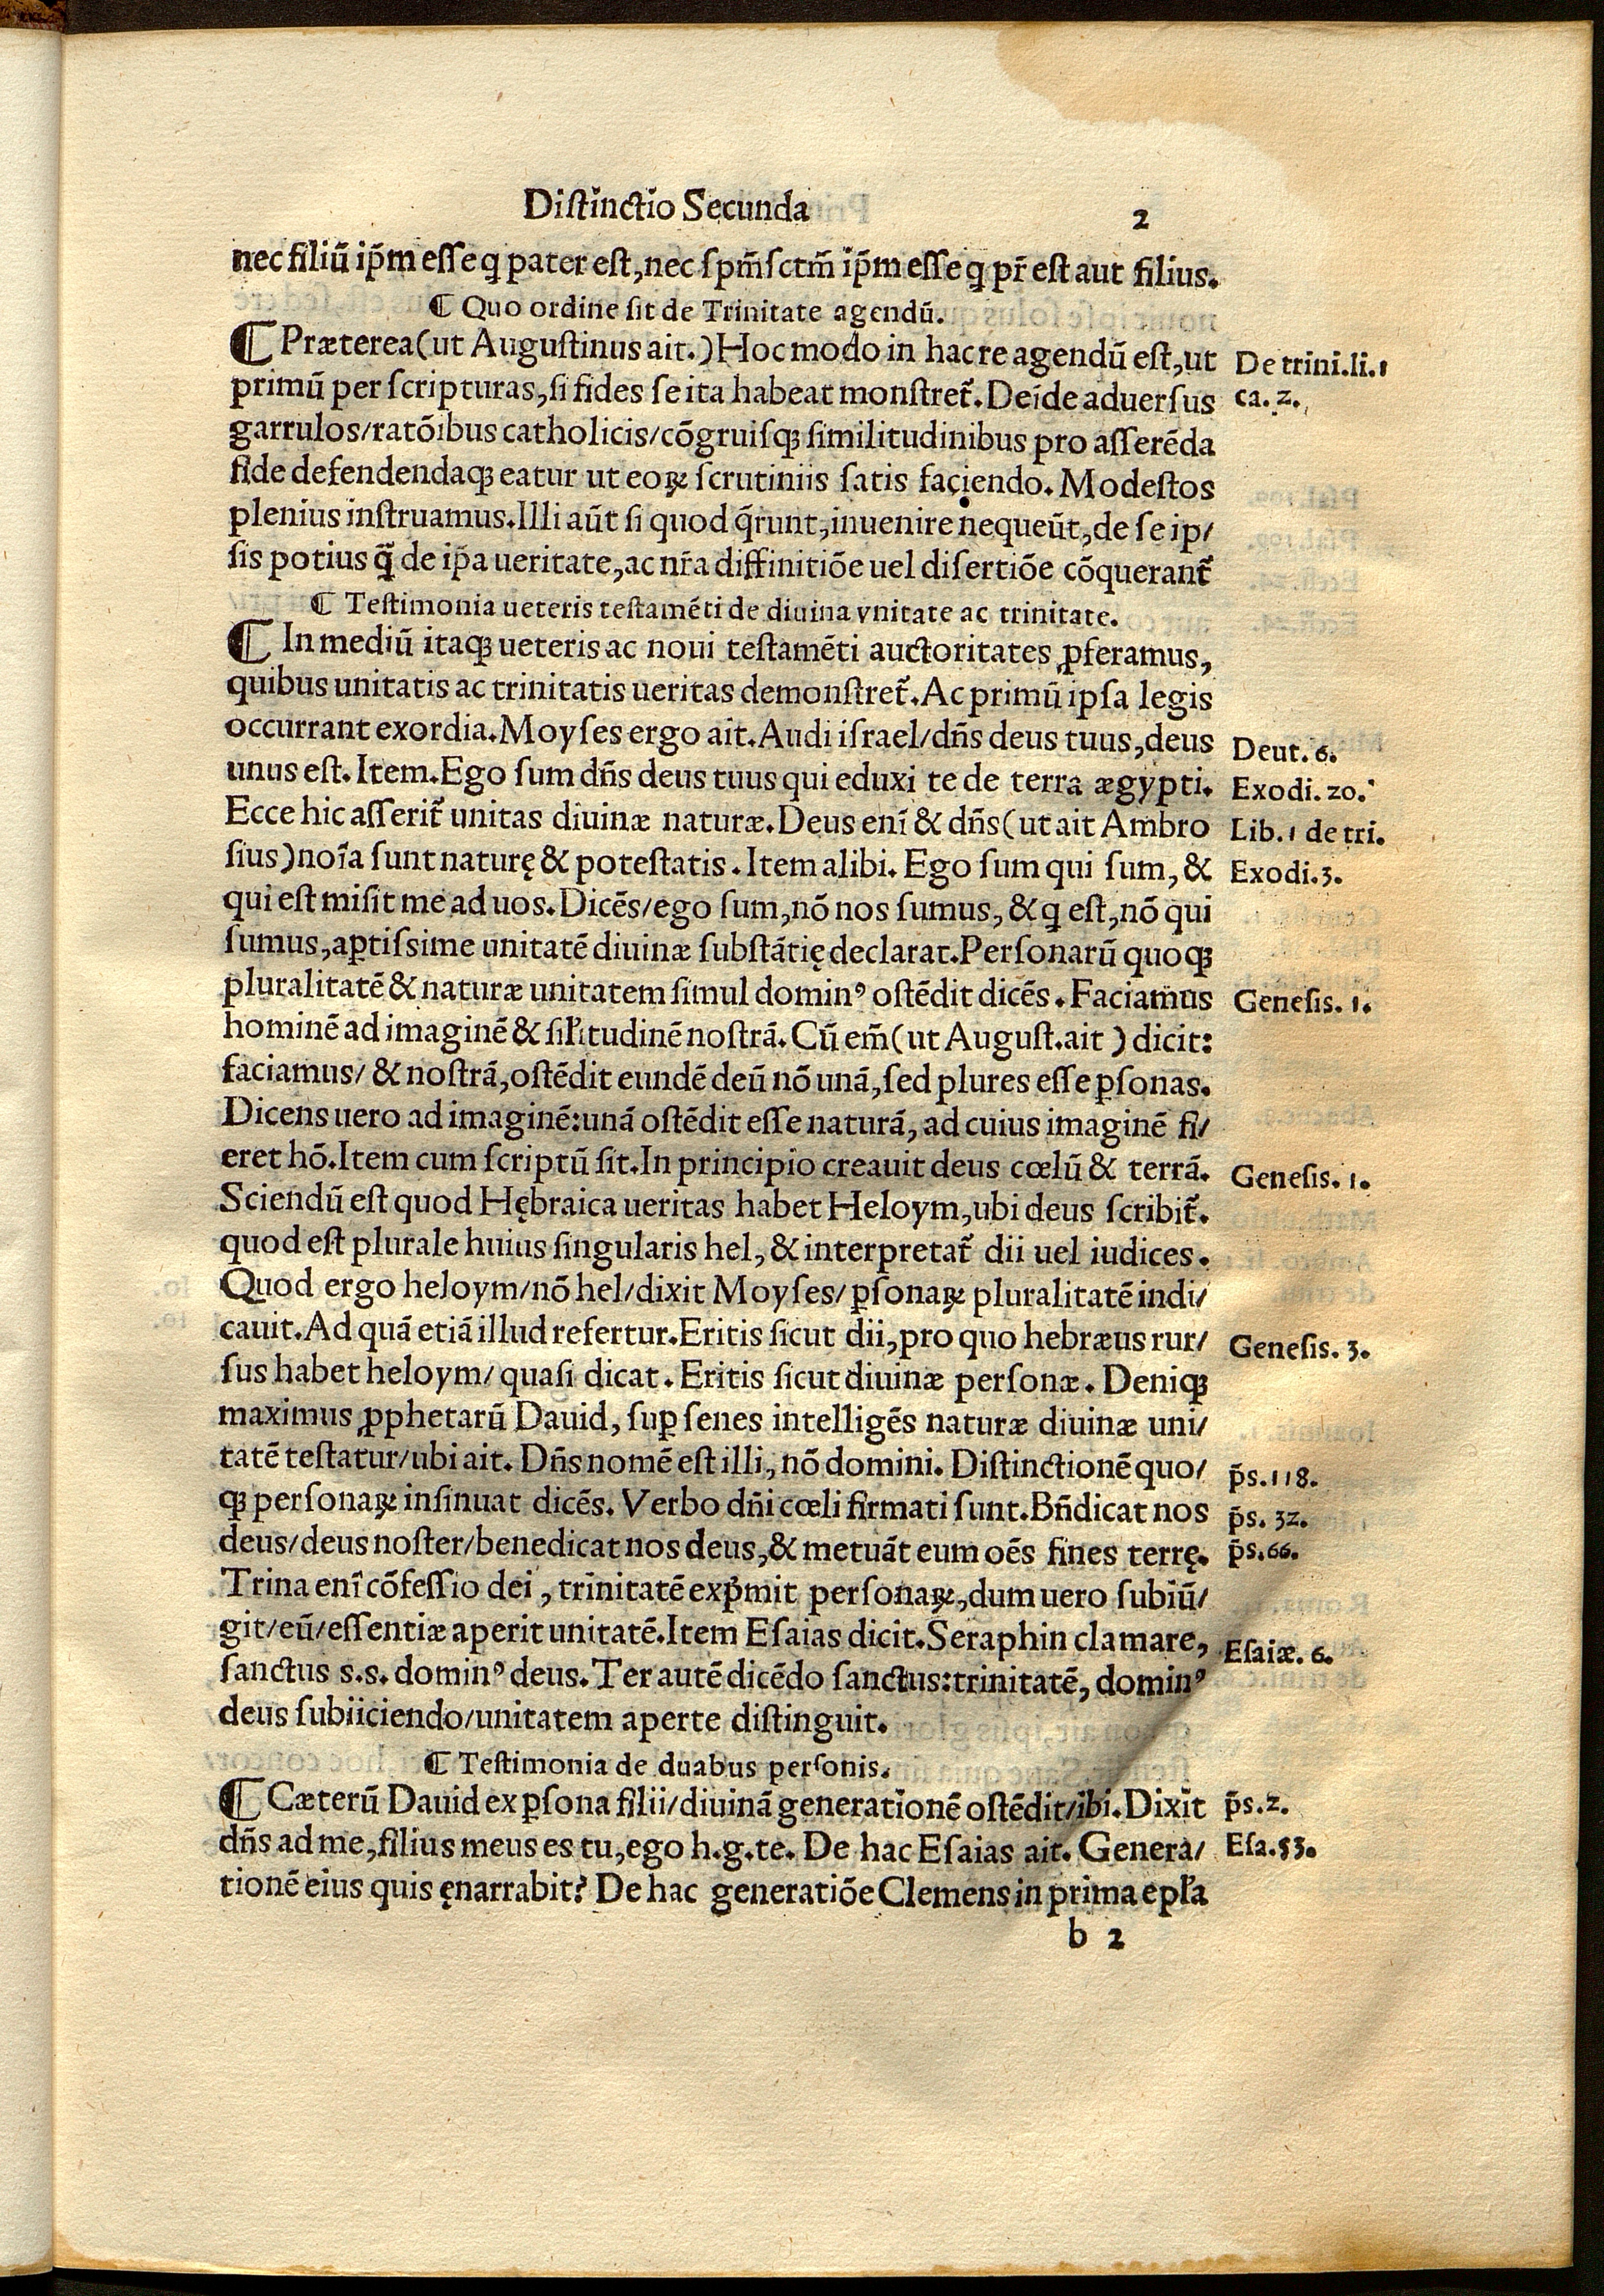 Distinctio Secunda 2
nec filiū ip̄m esse q pater est, nec sp̄m sctm̄ ip̄m esse q pr̄ est aut filius.
¶ Quo ordine sit de Trinitate agendū.
¶ Præterea (ut Augustinus ait.) Hoc modo in hac re agendū est, ut
De trini. li. 1
primū per scripturas, si fides se ita habeat monstret᷑. Deīde aduersus
ca. 2.
garrulos/ ratōibus catholicis/ cōgruisqꝫ similitudinibus pro asserēda
fide defendendaqꝫ eatur ut eoꝝ scrutiniis satis faciendo. Modestos
plenius instruamus. Illi aūt si quod q̄runt, inuenire nequeūt, de se ip/
sis potius q̄ de ip̄a ueritate, ac nr̄a diffinitiōe uel disertiōe cōquerant᷑
¶ Testimonia ueteris testamēti de diuina vnitate ac trinitate.
¶ In mediū itaqꝫ ueteris ac noui testamēti auctoritates ꝓferamus,
quibus unitatis ac trinitatis ueritas demonstret᷑. Ac primū ipsa legis
occurrant exordia. Moyses ergo ait. Audi israel/ dn̄s deus tuus, deus
Deut. 6.
unus est. Item. Ego sum dn̄s deus tuus qui eduxi te de terra ægypti.
Exodi. 20.
Ecce hic asserit᷑ unitas diuinæ naturæ. Deus enī & dn̄s (ut ait Ambro
Lib. 1 de tri.
sius) noīa sunt naturę & potestatis. Item alibi. Ego sum qui sum, &
Exodi. 3.
qui est misit me ad uos. Dicēs/ ego sum, nō nos sumus, & q est, nō qui
sumus, aꝑtissime unitatē diuinæ substātię declarat. Personarū quoqꝫ
pluralitatē & naturæ unitatem simul dominꝰ ostēdit dicēs. Faciamus
Genesis. 1.
hominē ad imaginē & sil̄itudinē nostrā. Cū em̄ (ut August. ait) dicit:
faciamus/ & nostrā, ostēdit eundē deū nō unā, sed plures esse ꝑsonas.
Dicens uero ad imaginē: unā ostēdit esse naturā, ad cuius imaginē fi/
eret hō. Item cum scriptū sit. In principio creauit deus cœlū & terrā.
Genesis. 1.
Sciendū est quod Hębraica ueritas habet Heloym, ubi deus scribit᷑.
quod est plurale huius singularis hel, & interpretat᷑ dii uel iudices.
Quod ergo heloym/ nō hel/ dixit Moyses/ ꝑsonaꝝ pluralitatē indi/
cauit. Ad quā etiā illud refertur. Eritis sicut dii, pro quo hebræus rur/
Genesis. 3.
sus habet heloym/ quasi dicat. Eritis sicut diuinæ personæ. Deniqꝫ
maximus ꝓphetarū Dauid, suꝑ senes intelligēs naturæ diuinæ uni/
tatē testatur/ ubi ait. Dn̄s nomē est illi, nō domini. Distinctionē quo/
p̄s. 118.
qꝫ personaꝝ insinuat dicēs. Verbo dn̄i cœli firmati sunt. Bn̄dicat nos
p̄s. 32.
deus/ deus noster/ benedicat nos deus, & metuāt eum oēs fines terrę.
p̄s. 66.
Trina enī cōfessio dei, trinitatē exp̄mit personaꝝ, dum uero subiū/
git/ eū/ essentiæ aperit unitatē. Item Esaias dicit. Seraphin clamare,
Esaiæ. 6.
sanctus s. s. dominꝰ deus. Ter autē dicēdo sanctus: trinitatē, dominꝰ
deus subiiciendo/ unitatem aperte distinguit.
¶ Testimonia de duabus personis.
¶ Cæterū Dauid ex ꝑsona filii/ diuinā generationē ostēdit/ ibi. Dixit
p̄s. 2.
dn̄s ad me, filius meus es tu, ego h. g. te. De hac Esaias ait. Genera/
Esa. 53.
tionē eius quis ęnarrabit? De hac generatiōe Clemens in prima epl̄a
b 2